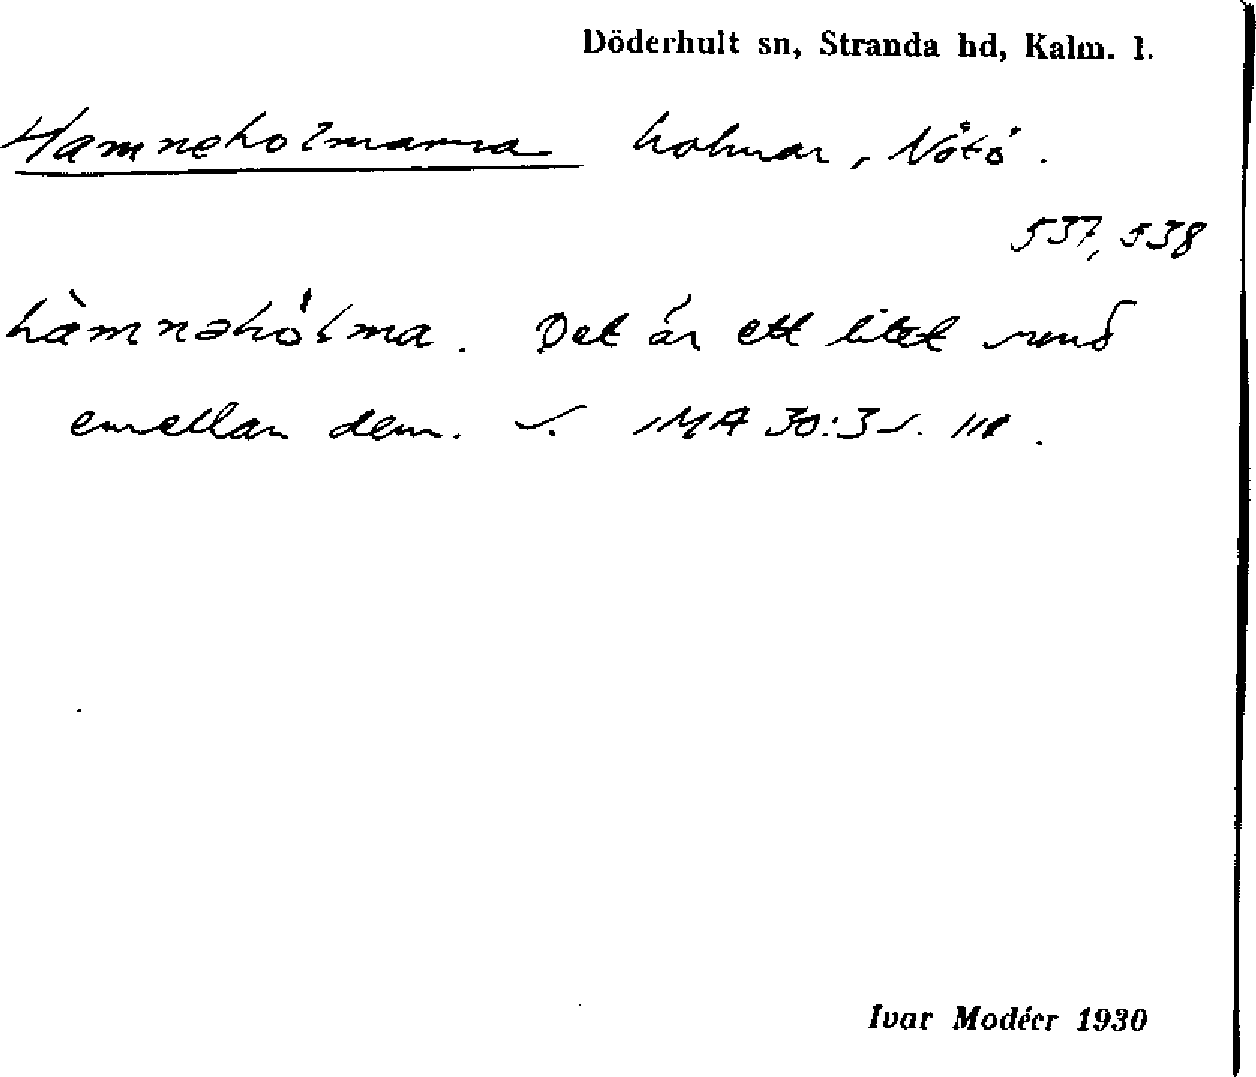 Döderhult sn, Stranda hd, Kalm. l.
Hamneholmarna holmar, Nötö.
537, 538
hàmnəhól̀ma. Det är ett litet sund
emellan dem. S. IMA 30:3 s.
Ivar Modéer 1930